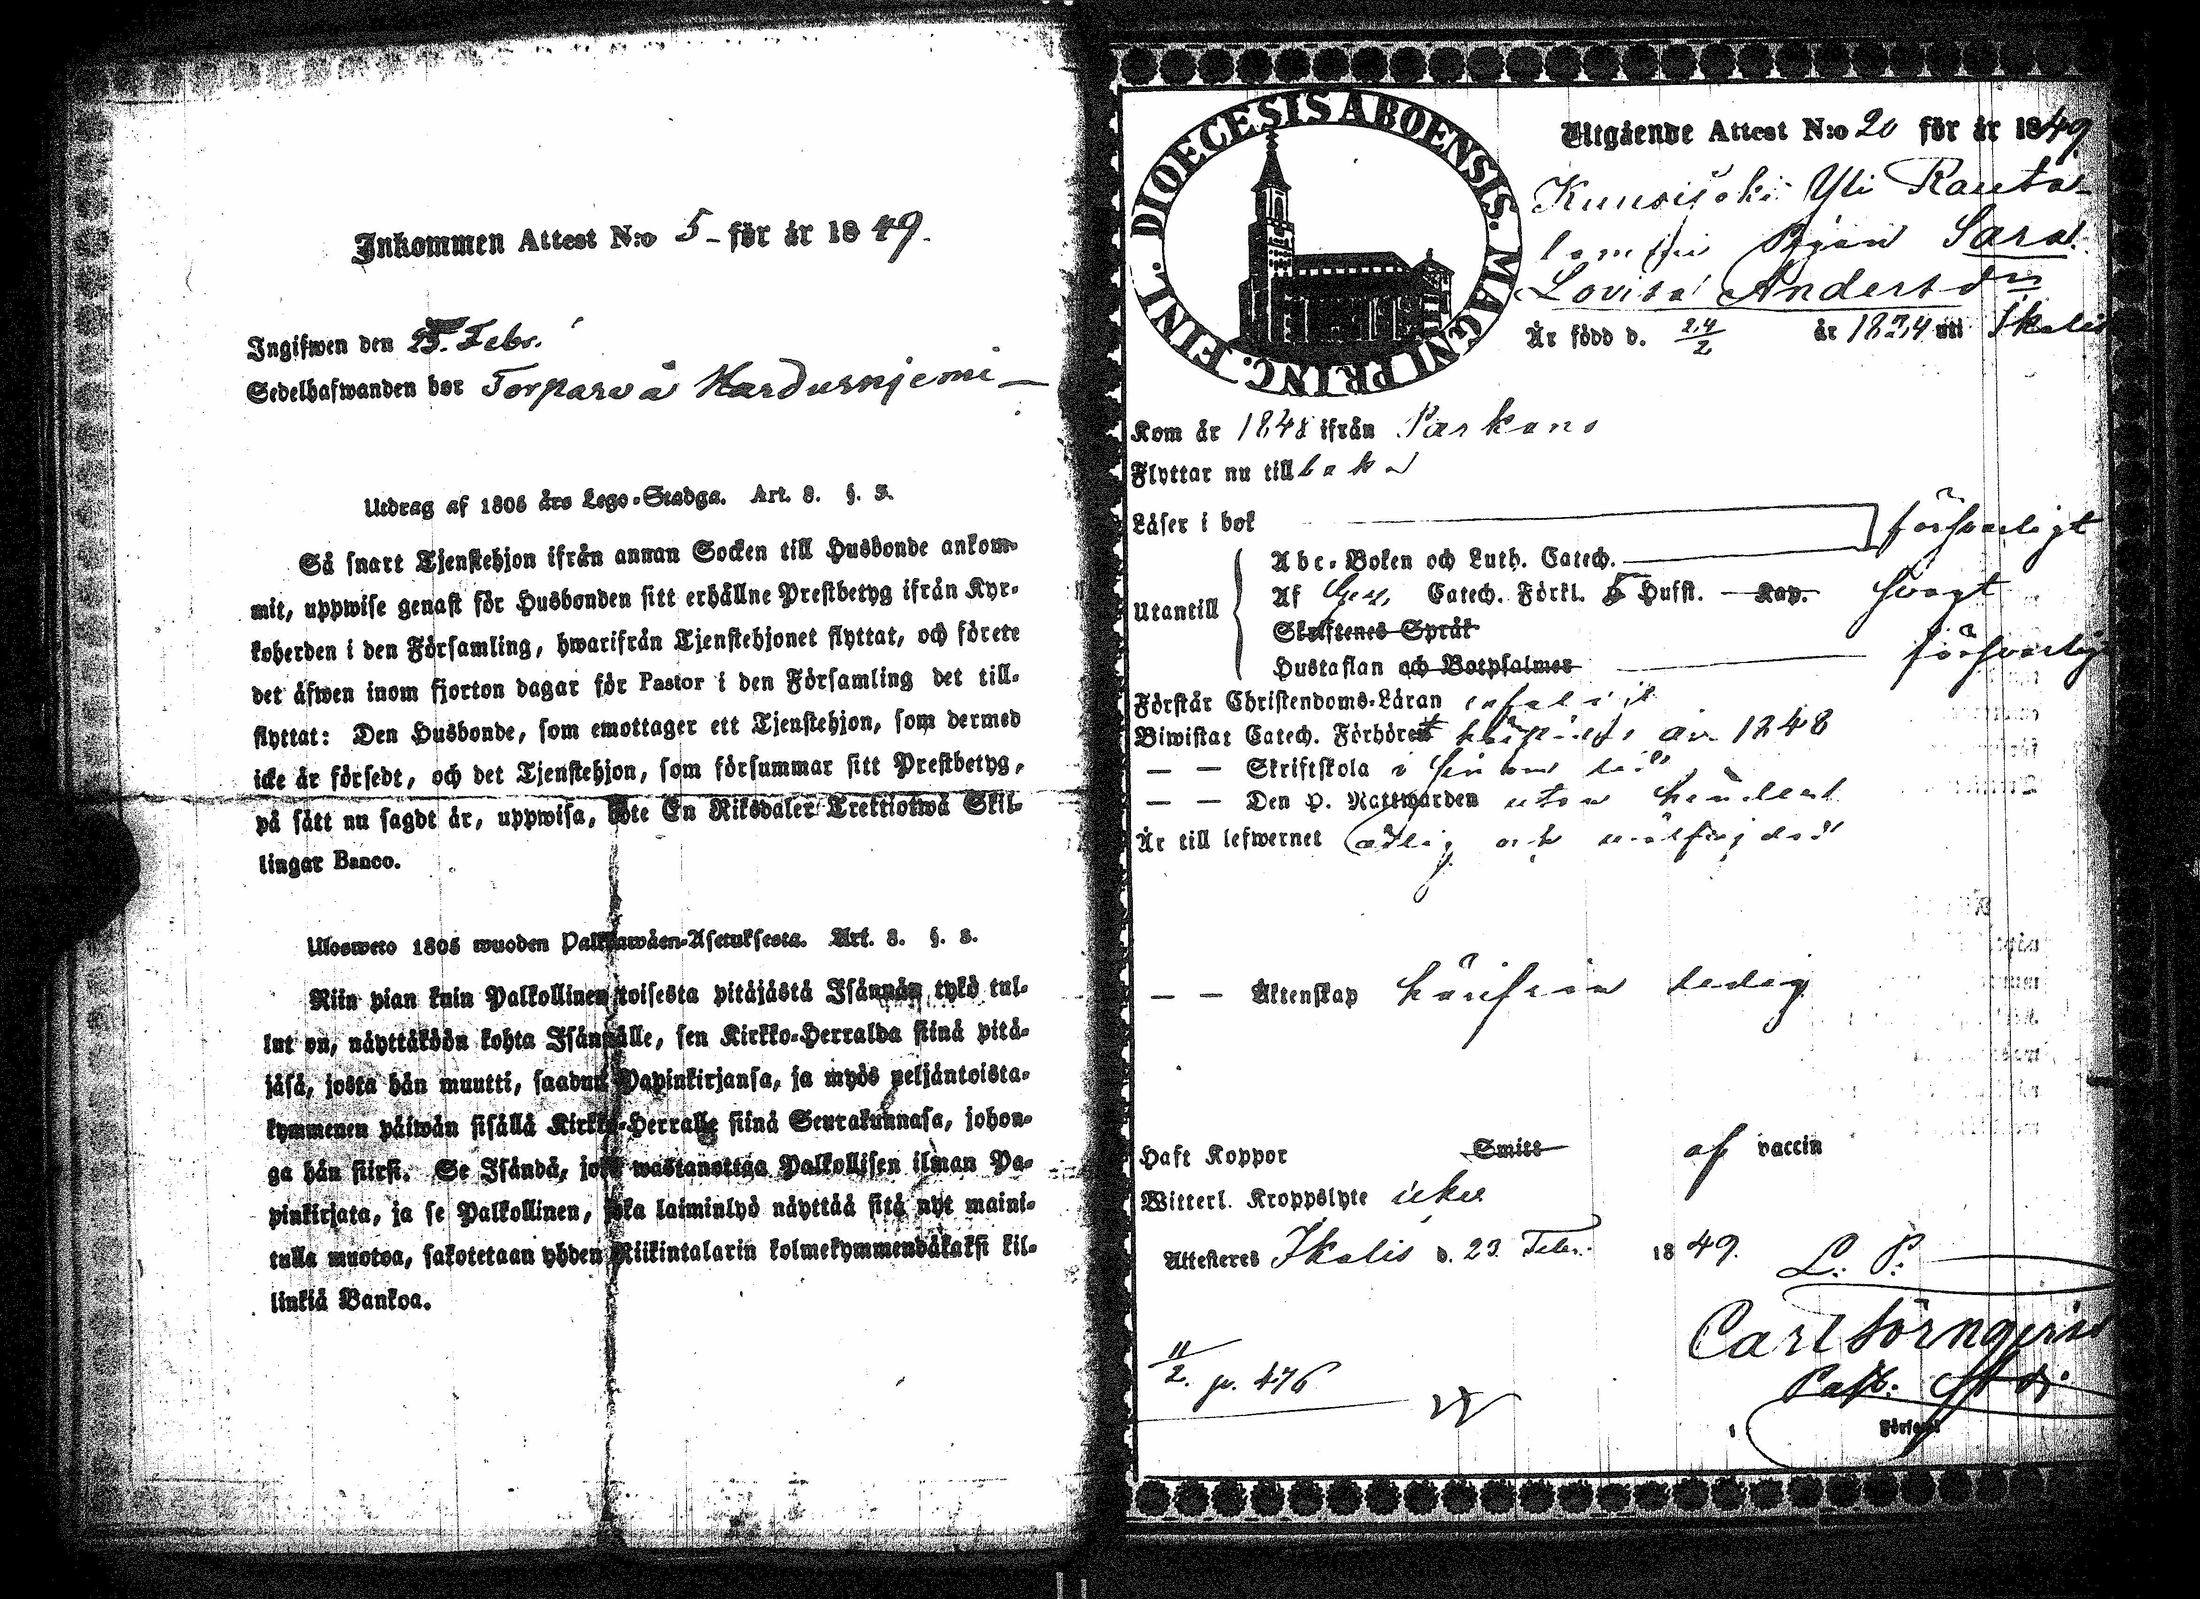 Inkommen Attest N:o 5 - för år 1849.
Ingifwen den 25. Febr.
Sedelhafwanden bor Torpare å
Utdrag af 1805 års Lego-Stadga. Art. 8. §. 3.
Så snart Tjenstehjon ifrån annan Socken till Husbonde ankom-
mit, uppwise genast för Husbonden sitt erhållne Prestbetyg ifrån Kyr-
koherden i den Församling, hwarifrån Tjenstehjonet flyttat, och förete
det äfwen inom fjorton dagar för Pastor i den Församling det till-
flyttat: Den Husbonde, som emottager ett Tjenstehjon, som dermed
icke är försedt, och det Tjenstehjon, som försummar sitt Prestbetyg,
på sätt nu sagdt är, uppwisa, böte En Riksdaler Trettiotwå Skil-
lingar Banco.
Uloswеto 1805 wuoden Palkkawäen-Asetuksesta. Art. 8. §. 3.
Niin pian kuin Palkollinen toisesta pitäjästä Isännän tykö tul-
lut on, näyttäköön kohta Isännälle, sen Kirkko-Herralda siinä pitä-
jäsä, josta hän muutti, saadun Papinkirjansa, ja myös neljäntoista-
kymmenen päiwän sisällä Kirkko-Herralle siinä Seurakunnasa, johon-
ga hän siirsi. Se Isändä, joka wastanottaa Palkollisen ilman Pa-
pinkirjata, ja se Palkollinen, joka laiminlyö näyttää sitä nyt maini-
tulla muotoa, sakotetaan yhden Riikintalarin kolmekymmendäkaksi kil-
linkiä Bankoa.
DIOECESIS ABOENSIS. MAGNI PRINC. FINL.
Utgående Attest N:o 20 för år 1849
Yli Rauta-
lampi Pigan Sara
Lovisa Andersdr
Är född d. 24/2 år 1824 uti Ikalis
Kom år 1848 ifrån Parkano
Flyttar nu tillbaka
Läser i bok försvarligt
Utantill
Abc-Boken och Luth. Catech.
Af Catech. Förkl. 5 Hufst. Kap. svagt
Skriftenes Språk
Hustaflan och Botpsalmer försvarligt
Förstår Christendoms-Läran
Biwistat Catech. Förhöret år 1848
— — Skriftskola i sinom tid
— — Den H. Nattwarden utan hinder
Är till lefwernet och
— — Äktenskap härifrån ledig
Haft Koppor Smitt af vaccin
Witterl. Kroppslyte icke
Attesteres Ikalis d. 23 Febr. 1849.
L. P.
Carl Törnqvist
Past.
Församl
11/2. p. 476